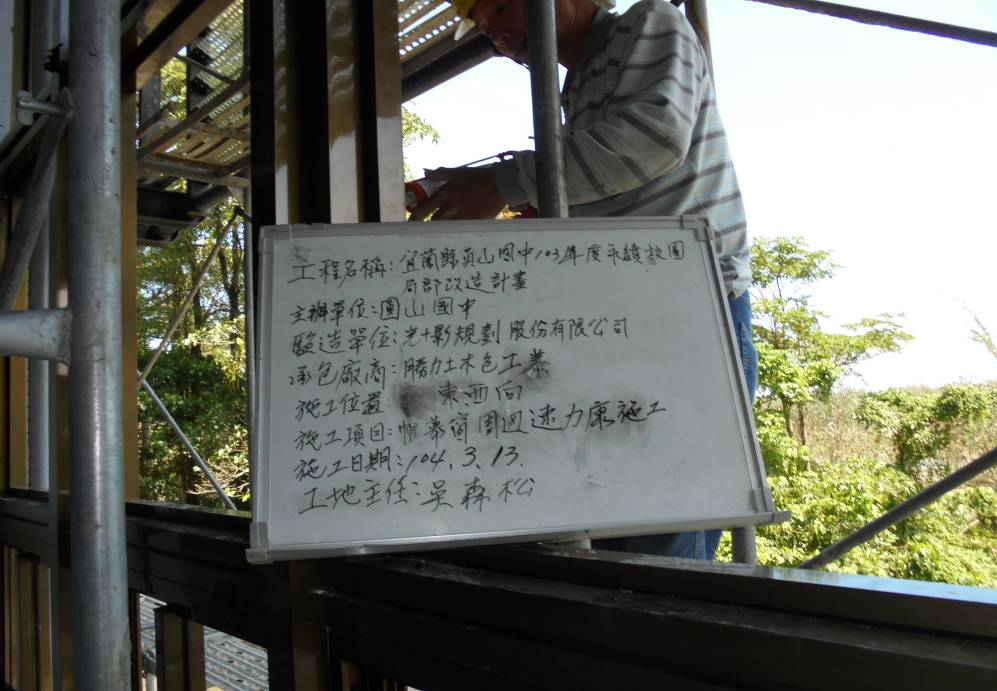 工程名稱:宜蘭縣員山國中103年度永續校園
局部改造計畫
主辦單位:圓山國中
監造單位:光+影規劃股份有限公司
承包廠商:勝力土木包工業
施工位置 東西向
施工項目:帷幕窗周圍速力康施工
施工日期:104.3.13.
工地主任:吳森松